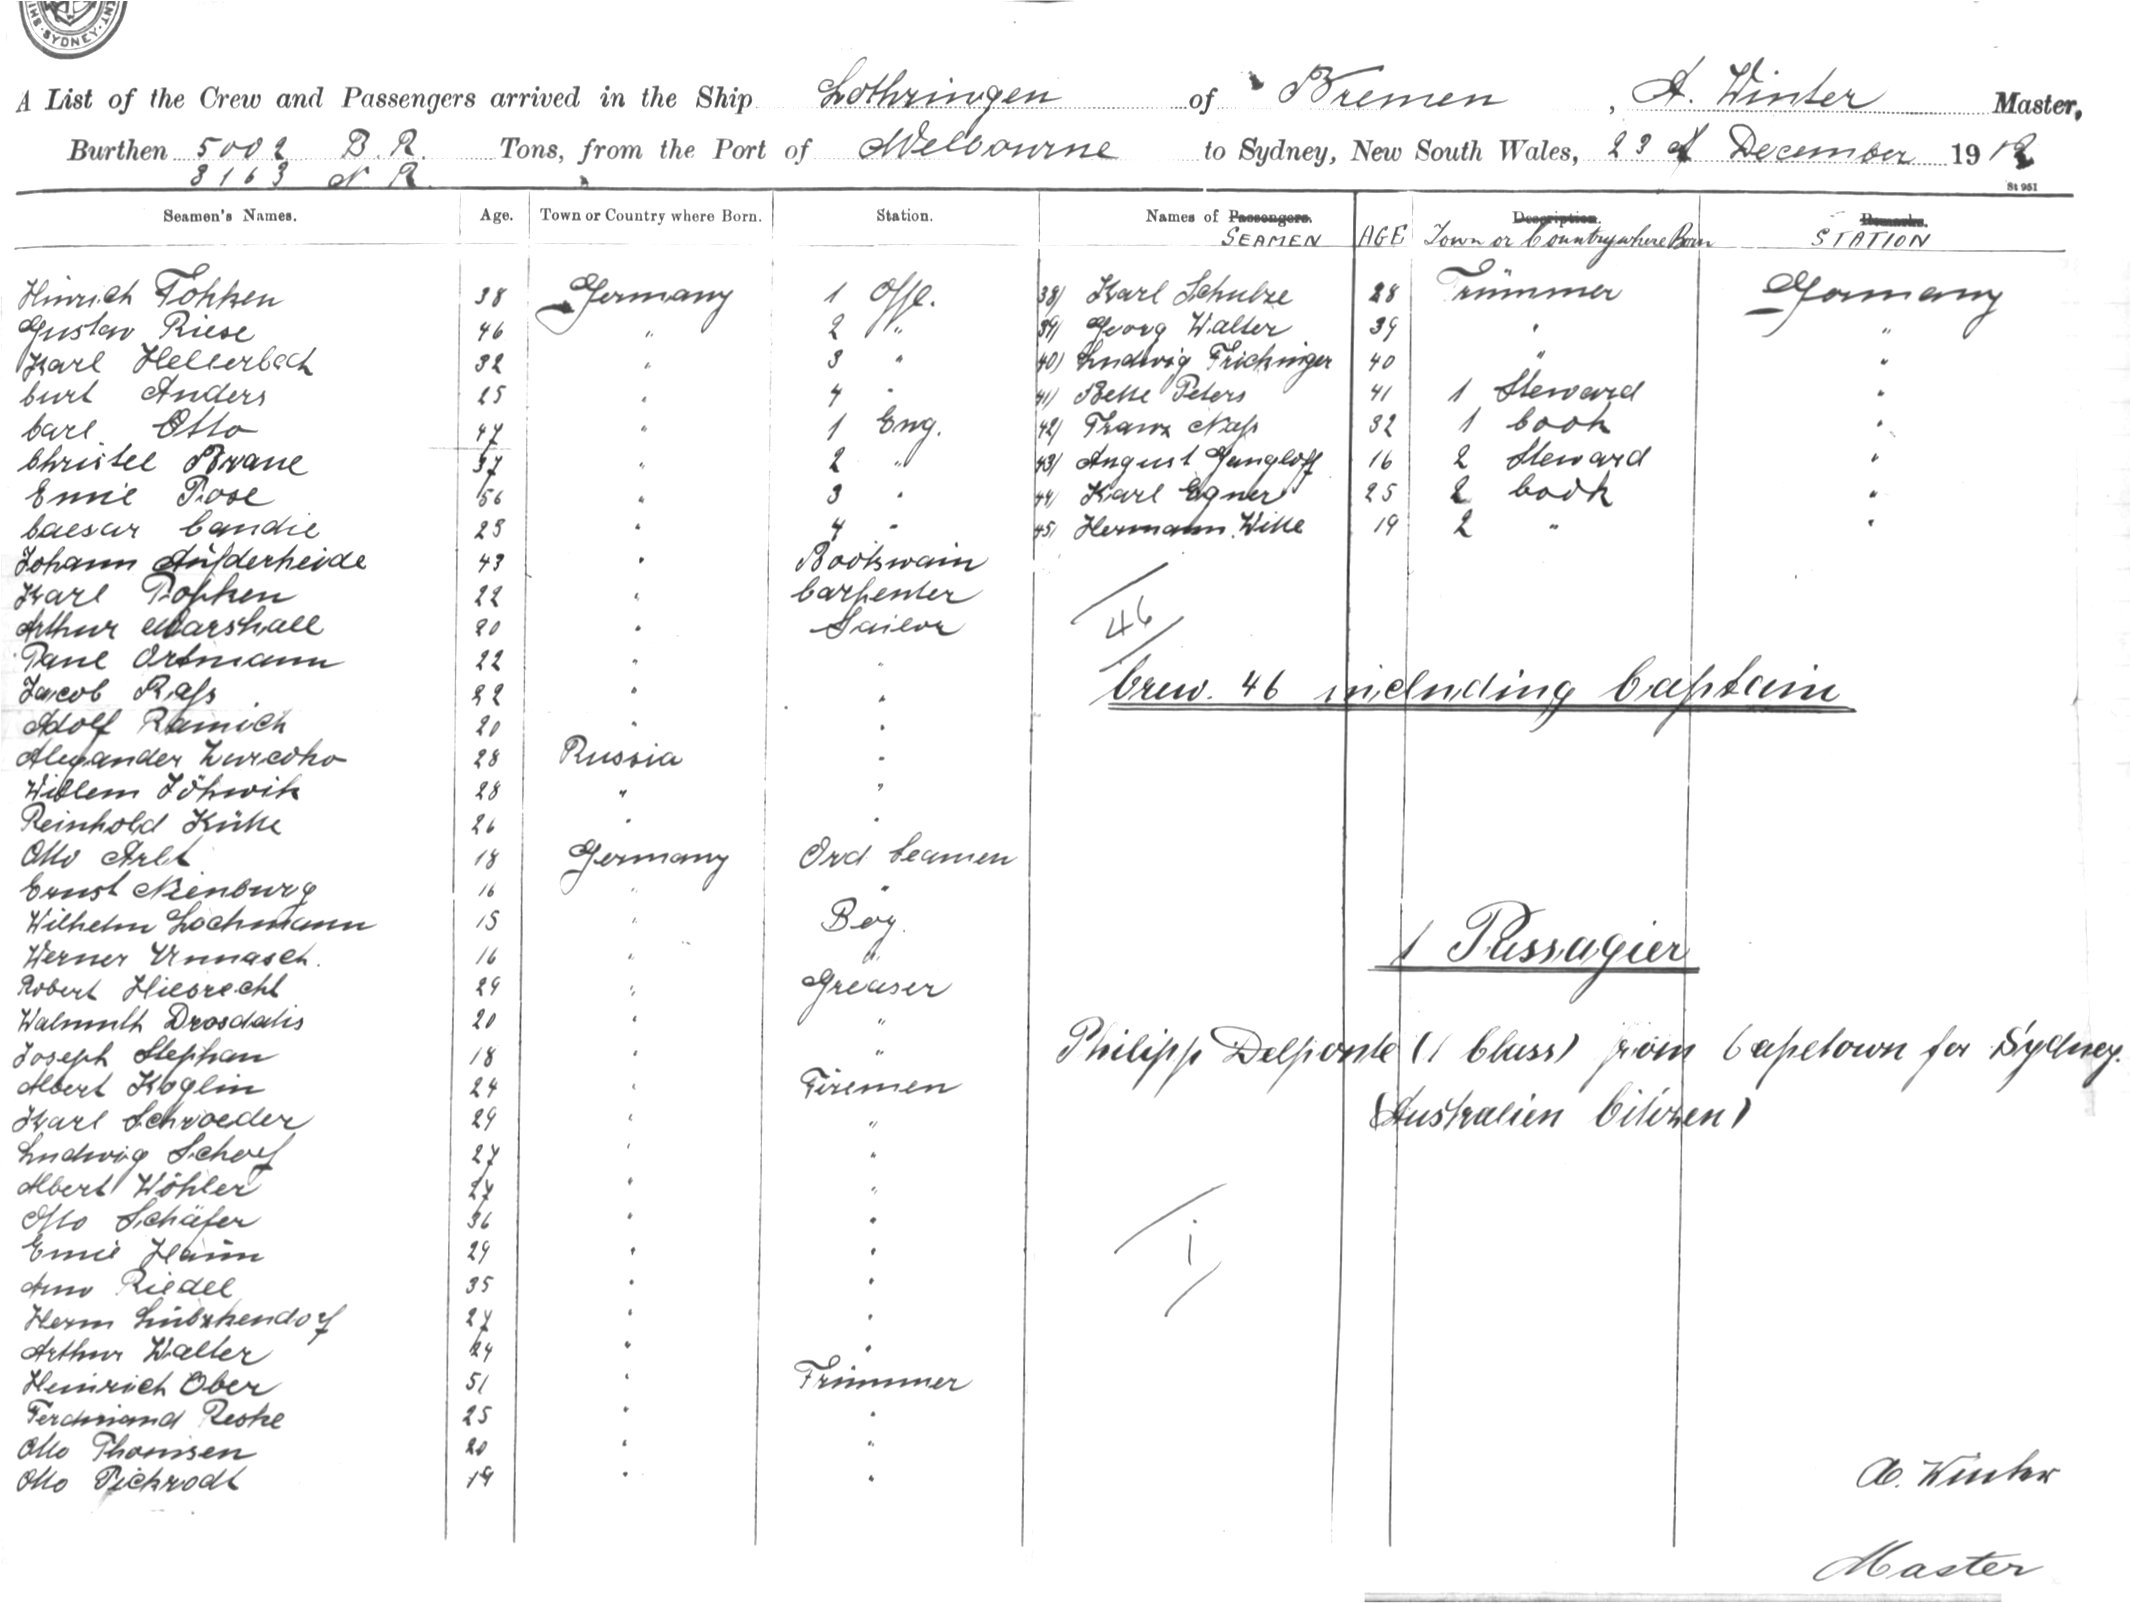 SYDNEY
A List of the Crew and Passengers arrived in the Ship Lothringen of Bremen, A. Winter Master,
Burthen 5002 B.R. Tons, from the Port of Melbourne to Sydney, New South Wales, 23 of December 1912
3163 N R.
St 951
Seamen's Names. Age. Town or Country where Born. Station. Names of Passengers. Description. Remarks.
SEAMEN AGE Town or Country where Born STATION
Hinrich Fokken 38 Germany 1 Offc. 38) Karl Schulze 28 Trümmer Germany
Gustav Riese 46 " 2 " 39) Georg Walter 39 " "
Karl Hellerbach 32 " 3 " 40) Ludwig Frickinger 40 " "
Curt Anders 25 " 4 " 41) Belle Peters 41 1 Steward "
Carl Otto 47 " 1 Eng. 42) Franz Nass 32 1 Cook "
Christel Brane 37 " 2 " 43) August Gangloff 16 2 Steward "
Emil Rose 56 " 3 " 44) Karl Egner 25 2 Cook "
Caesar Candie 23 " 4 " 45) Hermann Witte 19 2 " "
Johann Aufderheide 43 " Bootswain
Karl Popken 22 " Carpenter
Arthur Marshall 20 " Sailor
46
Paul Ortmann 22 " "
Jacob Rass 22 " "
Crew. 46 including Captain
Adolf Ramich 20 " "
Alexander 28 Russia "
Willem 28 " "
Reinhold 26 " "
Otto Arlt 18 Germany Ord Seamen
Ernst Nienburg 16 " "
Wilhelm Lochmann 15 " Boy.
Werner Unnasch. 16 " "
1 Passagier
Robert Hilbrecht 29 " Greaser
Walmuth Drosdatis 20 " "
Joseph Stephan 18 " "
Philipp Delponte (1 Class) from Capetown for Sydney.
Albert Koglin 24 " Firemen
Karl Schroeder 29 " "
(Australien Citizen)
Ludwig Schorf 27 " "
Albert Wöhler 27 " "
Otto Schäfer 36 " "
Emil Haun 29 " "
1
Arno Riedel 35 " "
Herm Lübkendorf 27 " "
Arthur Walter 24 " "
Heinrich Ober 51 " Trimmer
Ferdinand Reske 25 " "
Otto Thomsen 20 " "
Otto Pickrodt 19 " "
A. Winter
Master